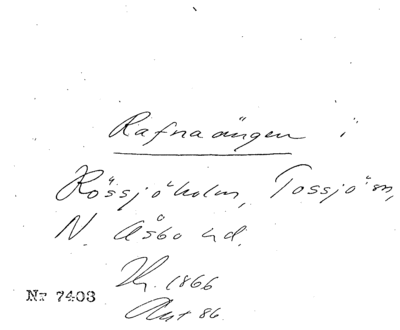 Rafnaängen i
Rössjöholm, Tossjö sn,
N. Åsbo hd.
1866
86
Nr 7403